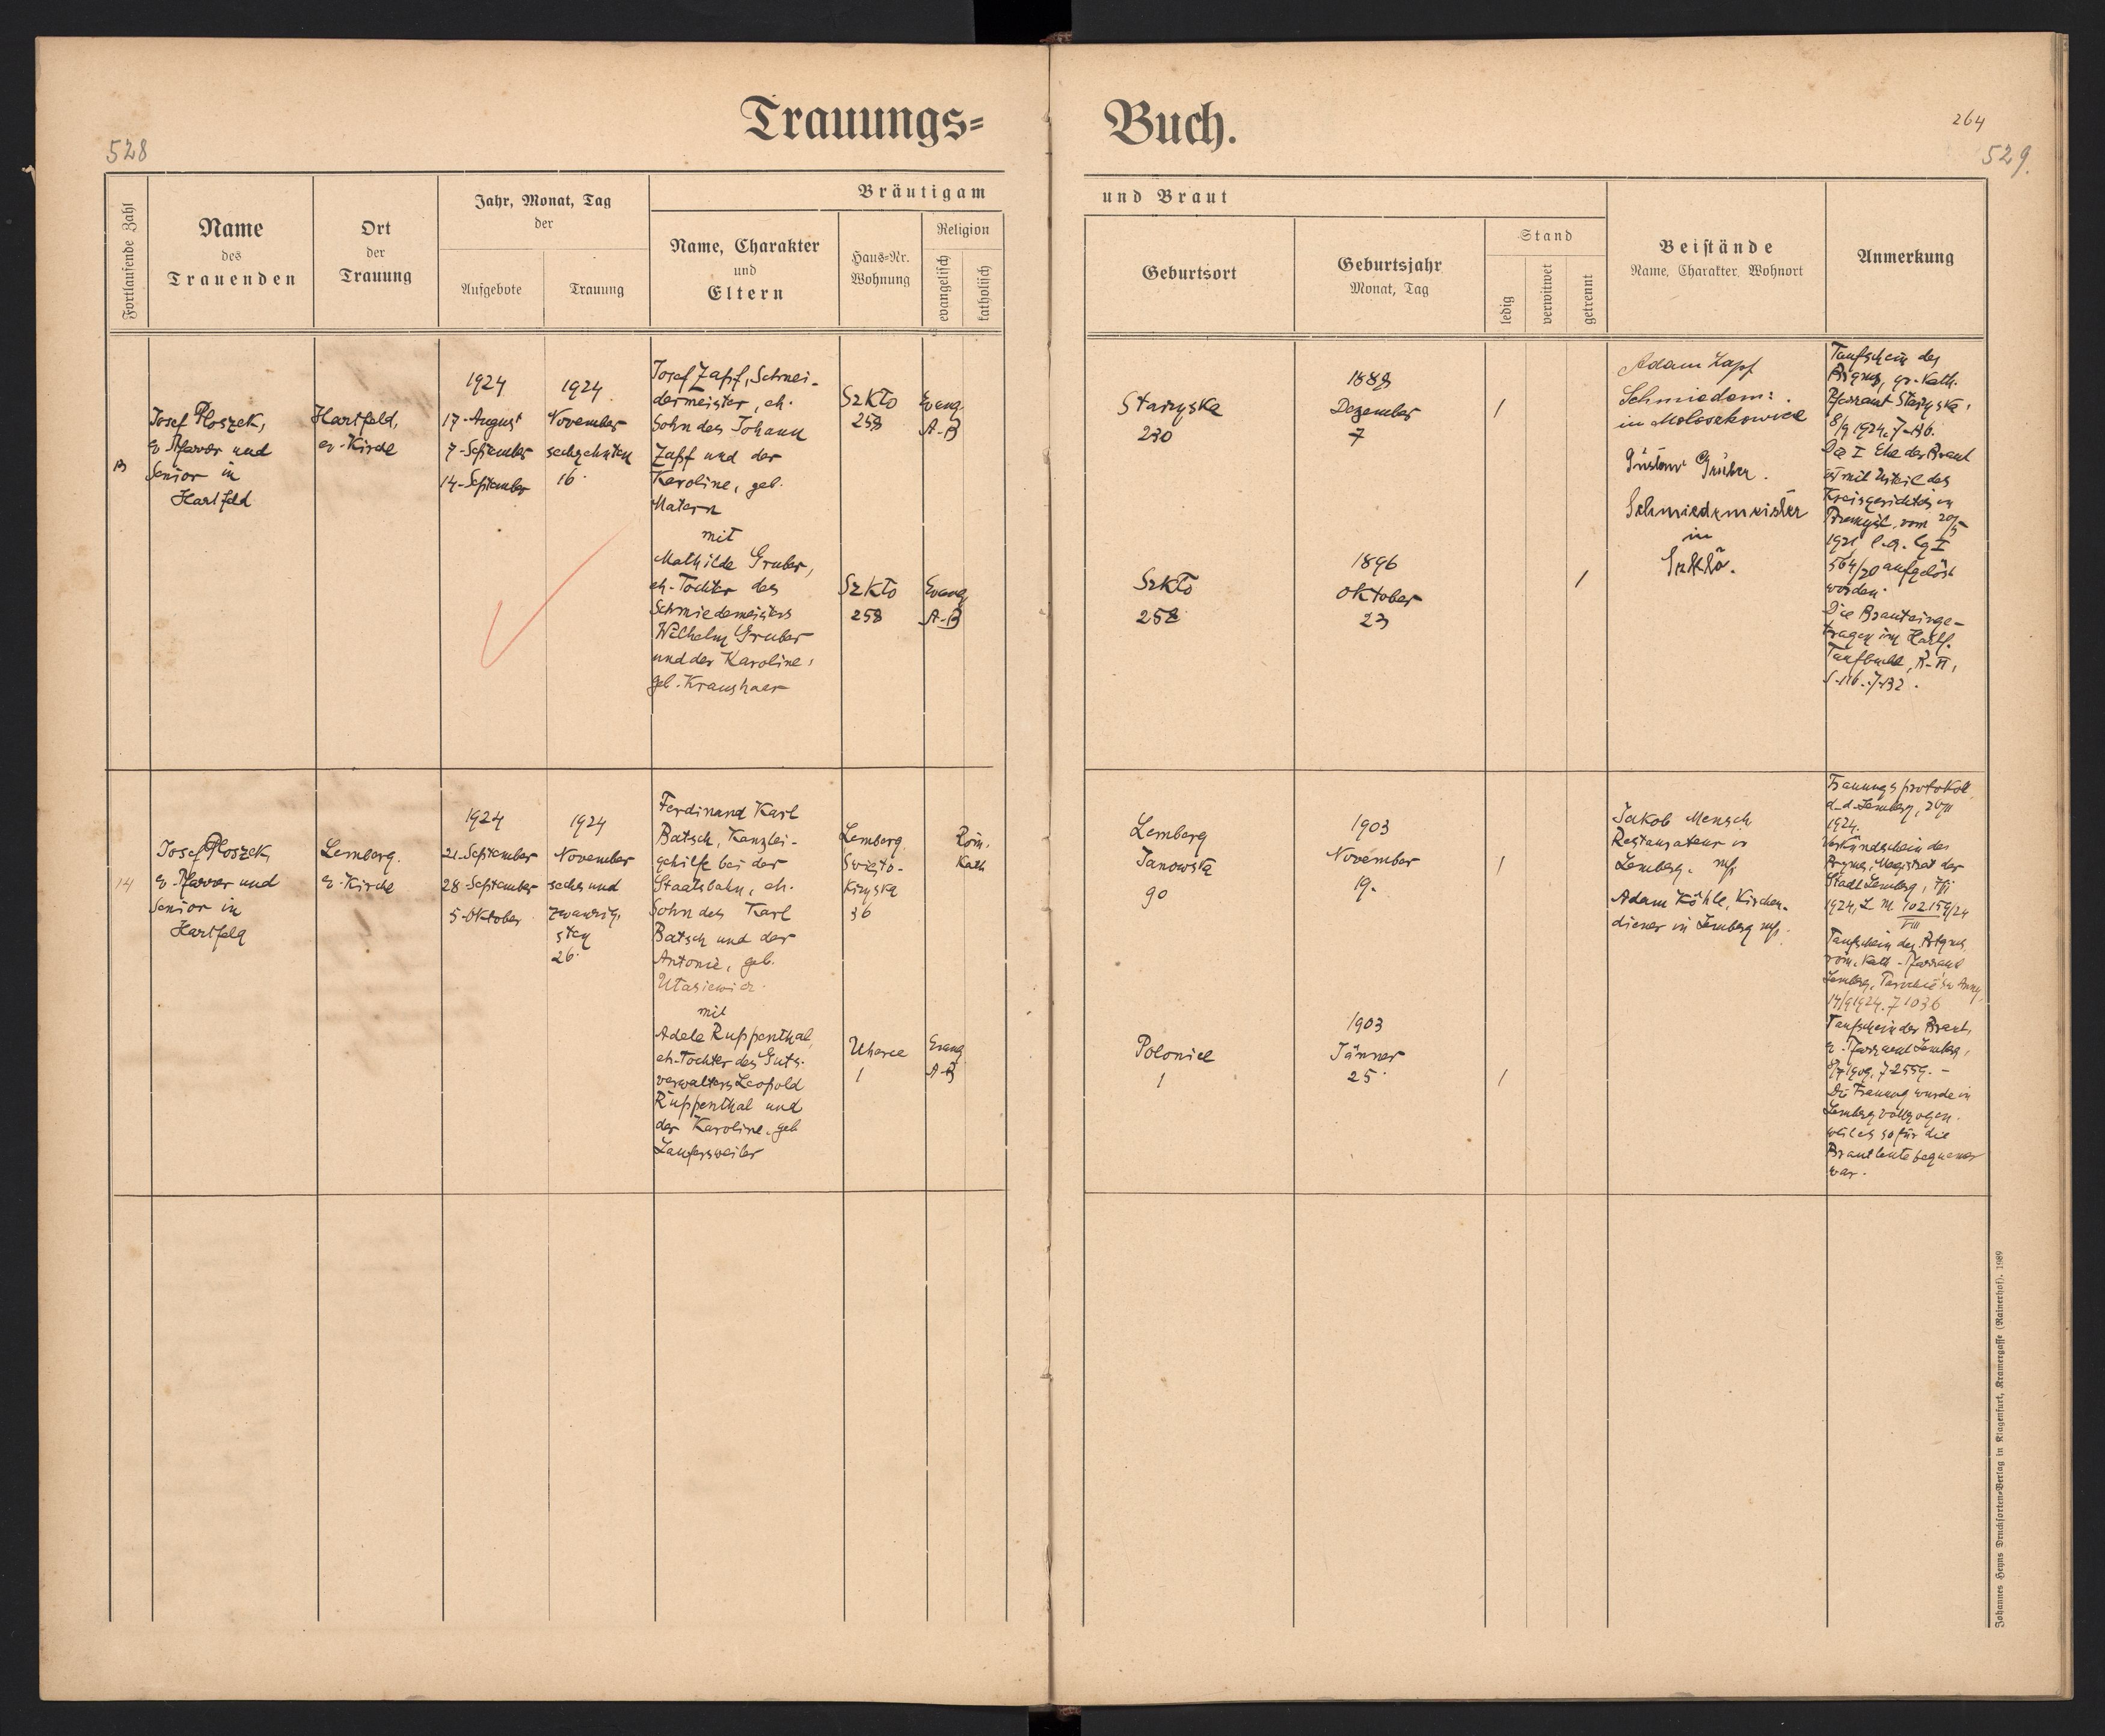 Trauungs=
Buch.
528
264
529.
Fortlaufende Zahl
Name
des
Trauenden
Ort
der
Trauung
Jahr, Monat, Tag
der
Aufgebote
Trauung
Bräutigam
Name, Charakter
und
Eltern
Haus=Nr.
Wohnung
Religion
evangelisch
katholisch
und Braut
Geburtsort
Geburtsjahr
Monat, Tag
Stand
ledig
verwitwet
getrennt
Beistände
Name, Charakter, Wohnort
Anmerkung
13
Josef Ploszek,
ev. Pfarrer und
Senior in
Hartfeld
Hartfeld,
ev. Kirche
1924
17. August
7. September
14. September
1924
November
sechzehnten
16.
Josef Zapf, Schnei-
dermeister, eh.
Sohn des Johann
Zapf und der
Karoline, geb.
Matern
mit
Mathilde Gruber,
eh. Tochter des
Schmiedemeisters
Wilhelm Gruber
und der Karoline,
geb. Kraushaar
Szkło
258
Evang
A.B
Szkło
258
Evang
A.B
Starzyska
230
1889
Dezember
7
Szkło
258
1896
Oktober
23
Adam Zapf
Schmiedem:
in Moloszkowice
Gustav Gruber.
Schmiedemeister
in
Szkło.
Taufschein des
Btgms, gr. kath.
Pfarramt Starzyska,
8/9 1924, Z. 136.
Die I Ehe der Braut
ist mit Urteil des
Kreisgerichtes in
Przemyśl, vom 20/5
1921 l. a. Cg I
564/20 aufgelöst
worden.
Die Braut einge-
tragen im Hartf.
Taufbuche, B. II,
S. 116. Z. 132.
14
Josef Ploszek,
ev. Pfarrer und
Senior in
Hartfeld
Lemberg.
ev. Kirche
1924
21. September
28. September
5. Oktober
1924
November
sechs und
zwanzig,
sten
26.
Ferdinand Karl
Batsch, Kanzlei-
gehilfe bei der
Staatsbahn, eh.
Sohn des Karl
Batsch und der
Antonie, geb.
Utasiewicz.
mit
Adele Ruppenthal,
eh. Tochter des Guts-
verwalters Leopold
Ruppenthal und
der Karoline, geb
Laufersweiler
Lemberg
Święto-
krzyska
36
Röm.
Kath
Uherce
1
Evang
A.B
Lemberg
Janowska
90
1903
November
19.
Polonice
1
1903
Jänner
25.
Jakob Mensch
Restaurateur in
Lemberg. mp
Adam Köhle, Kirchen-
diener in Lemberg mp.
Trauungsprotokoll
d. d. Lemberg, 26/11
1924.
Verkündschein des
Btgms, Magistrat der
Stadt Lemberg,
1924, L. M. 102159/24
VIII
Taufschein des Btgms
röm. kath. Pfarramt
Lemberg, Św Anny,
14/9 1924. Z 1036
Taufschein der Braut,
ev. Pfarramt Lemberg,
1909, Z. 2559. -
Die Trauung wurde in
Lemberg vollzogen.
weil es so für die
Brautleute bequemer
war.
Johannes Heyns Drucksorten=Verlag in Klagenfurt, Kramergasse (Rainerhof). 1989